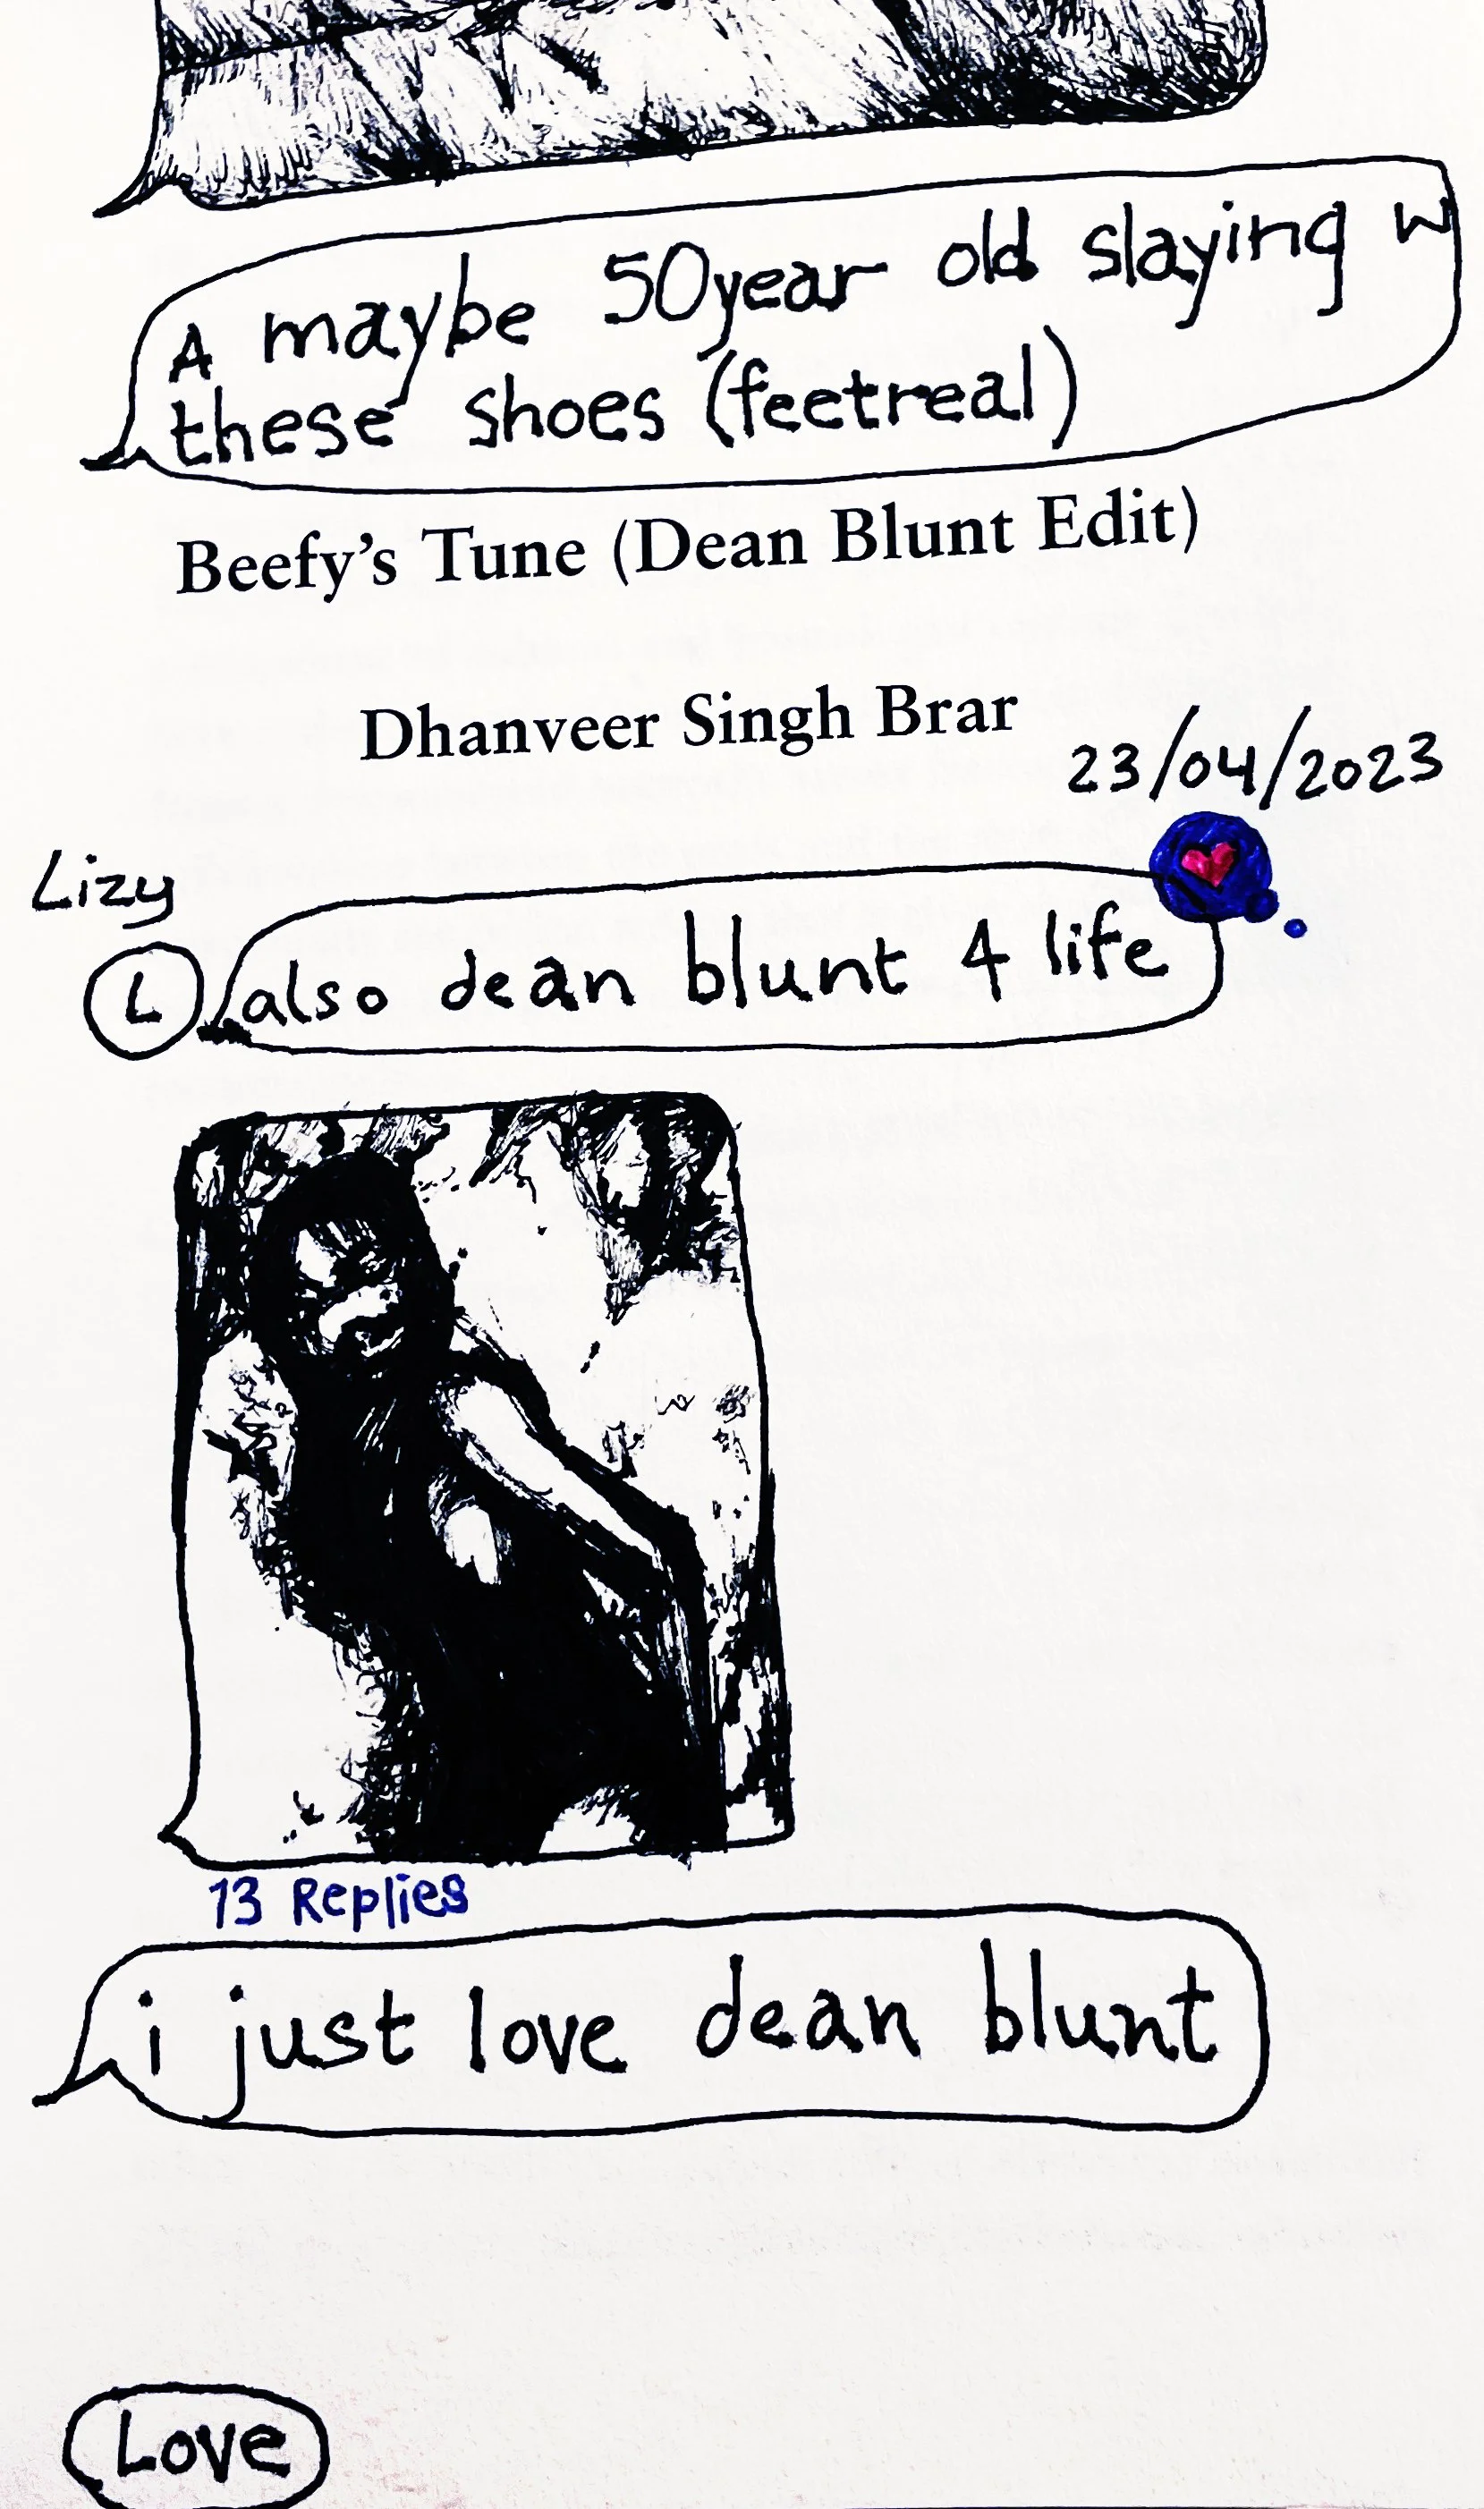 A maybe 50year old slaying w
these shoes (feetreal)
Beefy's Tune (Dean Blunt Edit)
Dhanveer Singh Brar
23/04/2023
Lizy
L
also dean blunt 4 life
13 Replies
i just love dean blunt
Love